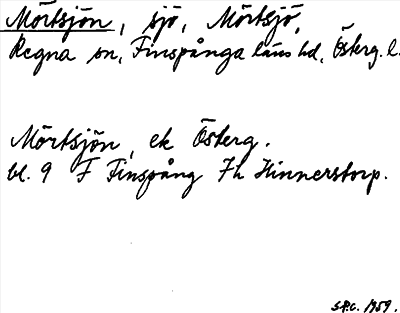 Mörtsjön, sjö, Mörtsjö,
Regna sn, Finspånga läns hd, Österg. l.
Mörtsjön, ek Österg.
bl. 9 F Finspång 7h Hinnerstorp.
S.P.C. 1959.